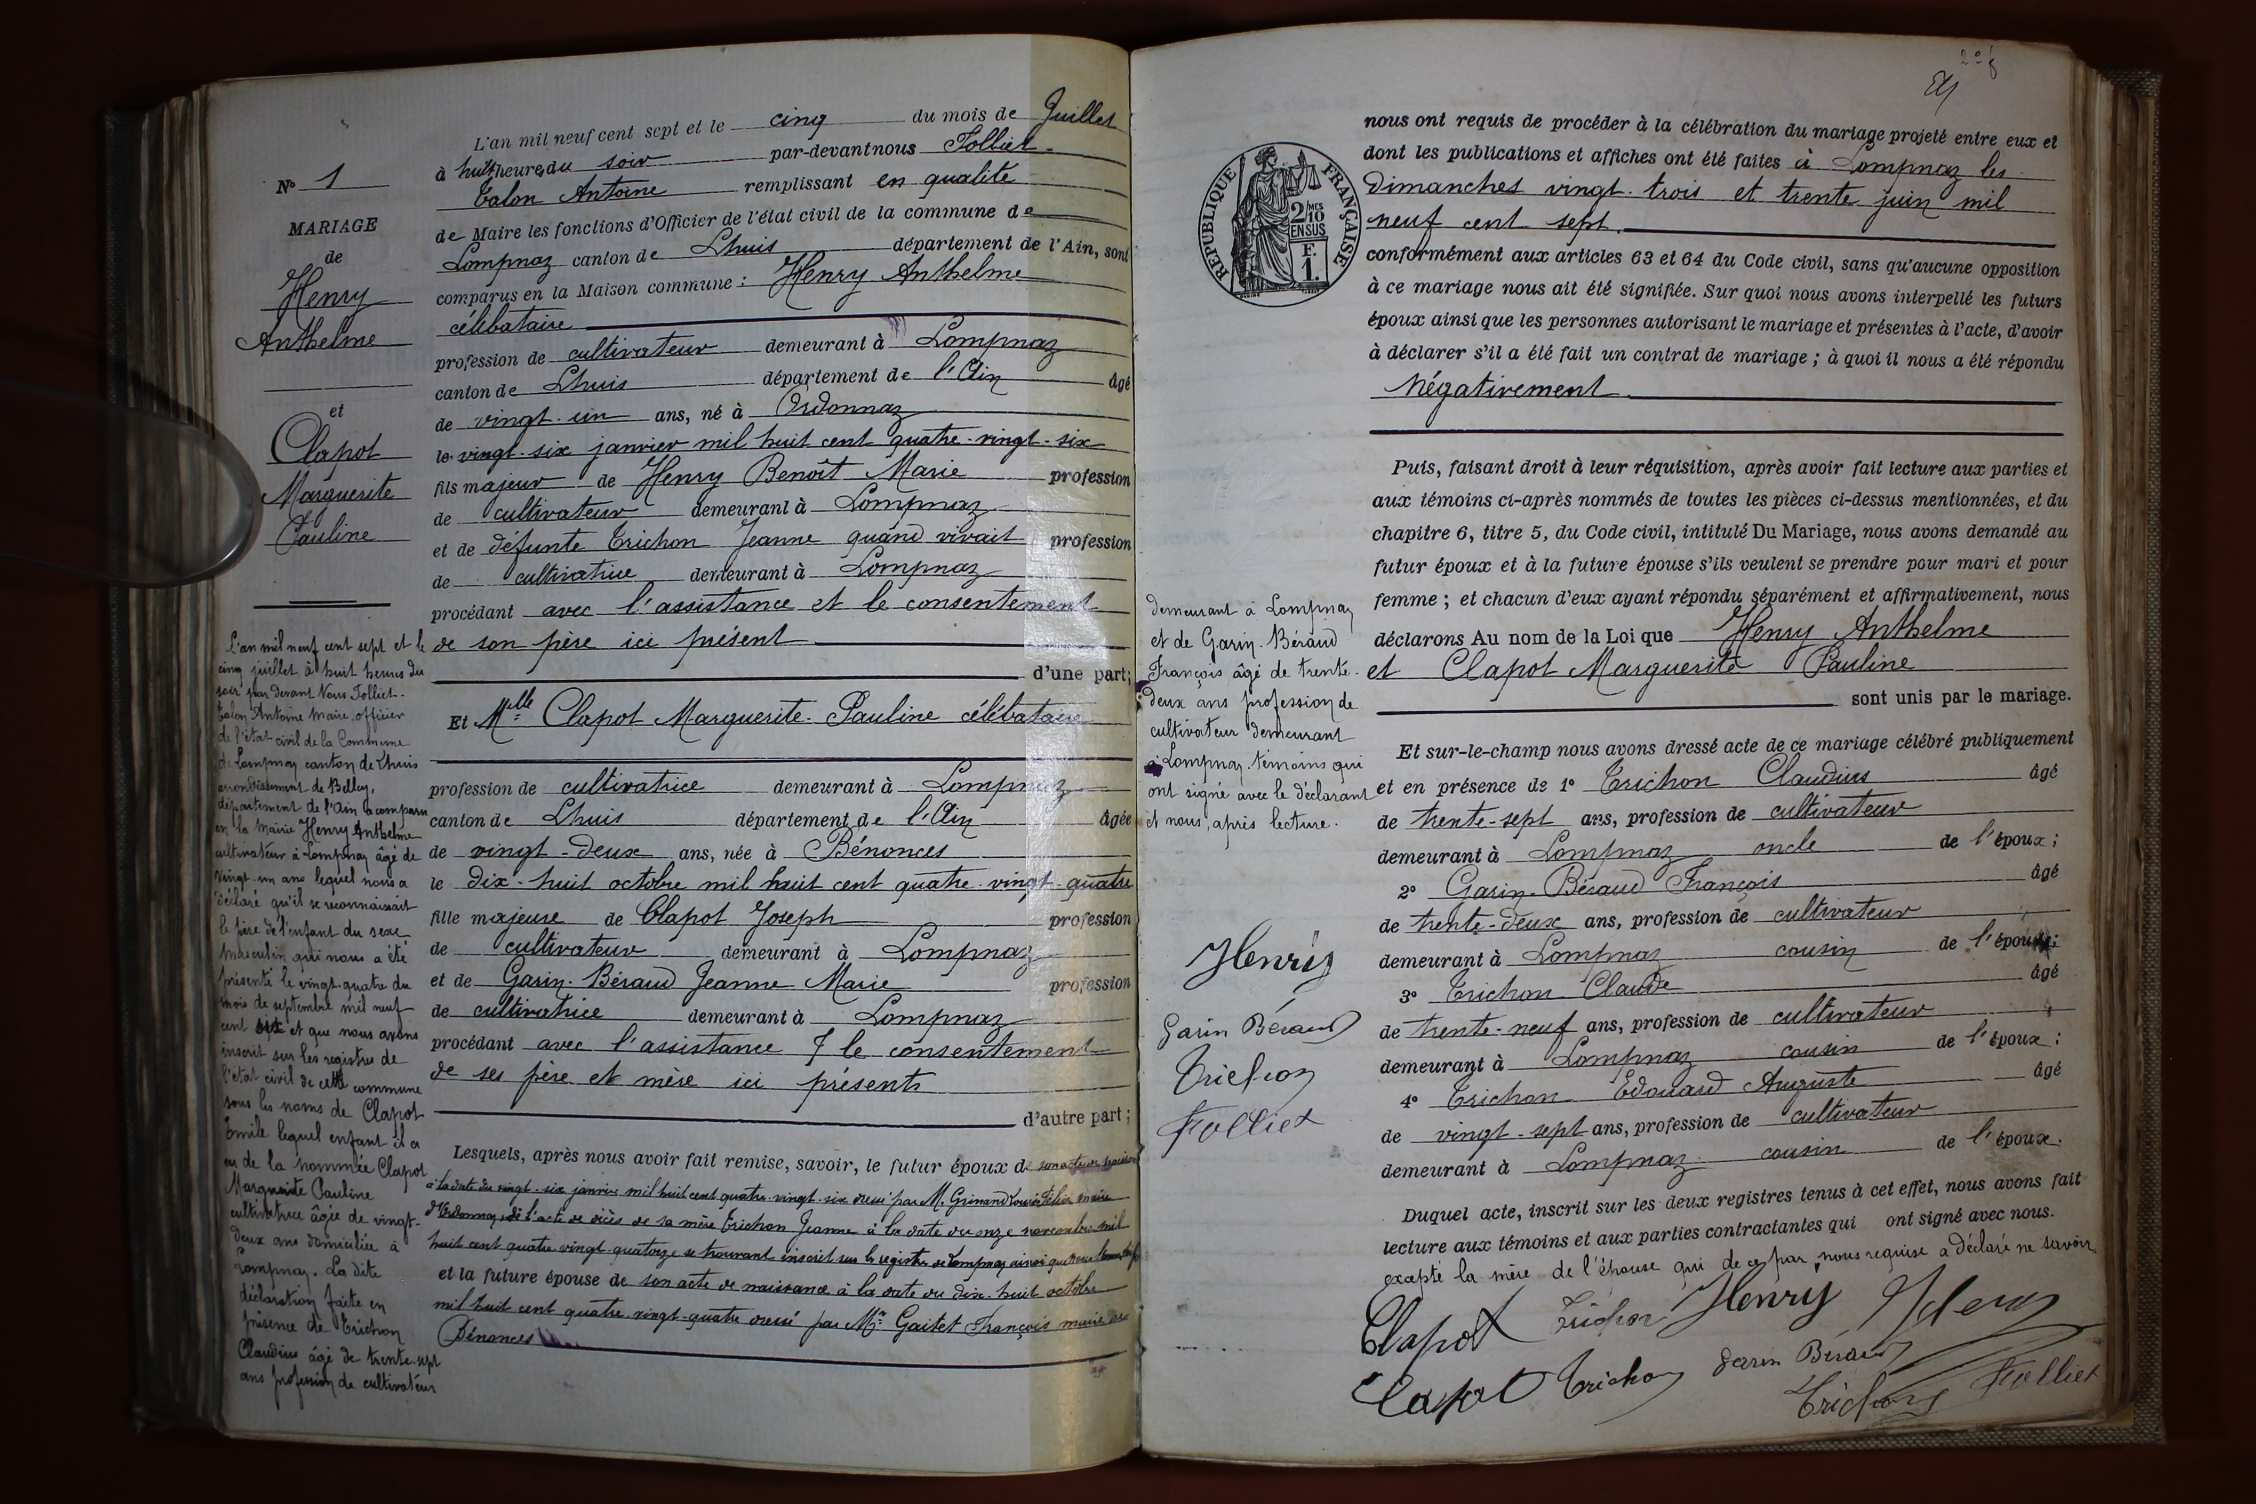 L'an mil neuf cent sept et le cinq du mois de Juillet
à huit heures du soir par-devant nous Folliet-
Talon Antoine remplissant en qualité
de Maire les fonctions d'Officier de l'état civil de la commune de
Lompnaz canton de Lhuis département de l'Ain, sont
comparus en la Maison commune : Henry Anthelme
célébataire
profession de cultivateur demeurant à Lompnaz
canton de Lhuis département de l'Ain âgé
de vingt-un ans, né à Ordonnaz
le vingt-six janvier mil huit cent quatre-vingt-six
fils majeur de Henry Benoît Marie profession
de cultivateur demeurant à Lompnaz
et de défunte Trichon Jeanne quand vivait profession
de cultivatrice demeurant à Lompnaz
procédant avec l'assistance et le consentement
de son père ici présent
d'une part;
Et Melle Clapot Marguerite-Pauline célébataire
profession de cultivatrice demeurant à Lompnaz
canton de Lhuis département de l'Ain âgée
de vingt-deux ans, née à Bénonces
le dix-huit octobre mil huit cent quatre-vingt-quatre
fille majeure de Clapot Joseph profession
de cultivateur demeurant à Lompnaz
et de Garin-Béraud Jeanne Marie profession
de cultivatrice demeurant à Lompnaz
procédant avec l'assistance & le consentement
de ses père et mère ici présents
d'autre part;
Lesquels, après nous avoir fait remise, savoir, le futur époux de son acte de
à la date du vingt-six janvier mil huit cent quatre-vingt-six dressé par M. Grinand Louis Félix maire
d'Ordonnaz, de l'acte de décès de sa mère Trichon Jeanne à la date du onze novembre mil
huit cent quatre-vingt-quatorze se trouvant inscrit sur les registres de Lompnaz ainsi que nous
et la future épouse de son acte de naissance à la date du dix-huit octobre
mil huit cent quatre-vingt-quatre dressé par Mr Gaitet François maire de
Bénonces
No 1
MARIAGE
de
Henry
Anthelme
et
Clapot
Marguerite
Pauline
L'an mil neuf cent sept et le
cinq juillet à huit heures du
soir par devant Nous Folliet-
Talon Antoine maire officier
de l'état civil de la Commune
de Lompnaz canton de Lhuis
arrondissement de Belley,
département de l'Ain a comparu
en la mairie Henry Anthelme
cultivateur à Lompnaz âgé de
vingt-un ans lequel nous a
déclaré qu'il se reconnaissait
le père de l'enfant du sexe
masculin qui nous a été
présenté le vingt-quatre du
mois de septembre mil neuf
cent et que nous avons
inscrit sur les registres de
l'état civil de cette commune
sous les noms de Clapot
Emile lequel enfant il a
eu de la nommée Clapot
Marguerite Pauline
cultivatrice âgée de vingt-
deux ans domiciliée à
Lompnaz. La dite
déclaration faite en
présence de Trichon
Claudius âgé de trente-sept
ans profession de cultivateur
208
nous ont requis de procéder à la célébration du mariage projeté entre eux et
dont les publications et affiches ont été faites à Lompnaz les
Dimanches vingt-trois et trente juin mil
neuf cent sept.
conformément aux articles 63 et 64 du Code civil, sans qu'aucune opposition
à ce mariage nous ait été signifiée. Sur quoi nous avons interpellé les futurs
époux ainsi que les personnes autorisant le mariage et présentes à l'acte, d'avoir
à déclarer s'il a été fait un contrat de mariage ; à quoi il nous a été répondu
Négativement.
Puis, faisant droit à leur réquisition, après avoir fait lecture aux parties et
aux témoins ci-après nommés de toutes les pièces ci-dessus mentionnées, et du
chapitre 6, titre 5, du Code civil, intitulé Du Mariage, nous avons demandé au
futur époux et à la future épouse s'ils veulent se prendre pour mari et pour
femme ; et chacun d'eux ayant répondu séparément et affirmativement, nous
déclarons Au nom de la Loi que Henry Anthelme
et Clapot Marguerite Pauline
sont unis par le mariage.
Et sur-le-champ nous avons dressé acte de ce mariage célébré publiquement
et en présence de 1o Trichon Claudius âgé
de trente-sept ans, profession de cultivateur
demeurant à Lompnaz oncle de l'époux ;
2o Garin-Béraud François âgé
de trente-deux ans, profession de cultivateur
demeurant à Lompnaz cousin de l'épouse ;
3o Trichon Claude âgé
de trente-neuf ans, profession de cultivateur
demeurant à Lompnaz cousin de l'époux ;
4o Trichon Edouard Auguste âgé
de vingt-sept ans, profession de cultivateur
demeurant à Lompnaz cousin de l'époux.
Duquel acte, inscrit sur les deux registres tenus à cet effet, nous avons fait
lecture aux témoins et aux parties contractantes qui ont signé avec nous.
excepté la mère de l'épouse qui de ce par nous requise a déclaré ne savoir
Clapot Trichon Henry Henry
Clapot Trichon Garin Béraud
Trichon Folliet
RÉPUBLIQUE FRANÇAISE
2 MES
10
EN SUS
F.
1.
demeurant à Lompnaz
et de Garin-Béraud
François âgé de trente-
deux ans profession de
cultivateur demeurant
à Lompnaz témoins qui
ont signé avec le déclarant
et nous, après lecture.
Henry
Garin Béraud
Trichon
Folliet